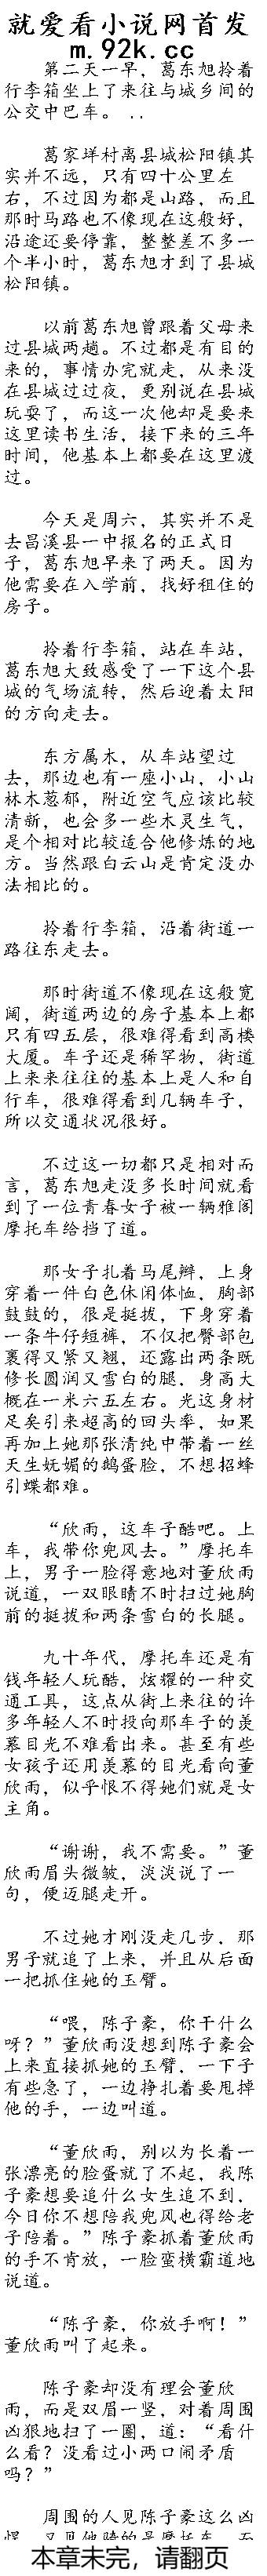 就爱看小说网首发
m.92k.cc
第二天一早，葛东旭拎着
行李箱坐上了来往与城乡间的
公交中巴车。 ..
葛家垟村离县城松阳镇其
实并不远，只有四十公里左
右，不过因为都是山路，而且
那时马路也不像现在这般好，
沿途还要停靠，整整差不多一
个半小时，葛东旭才到了县城
松阳镇。
以前葛东旭曾跟着父母来
过县城两趟。不过都是有目的
来的，事情办完就走，从来没
在县城过过夜，更别说在县城
玩耍了，而这一次他却是要来
这里读书生活，接下来的三年
时间，他基本上都要在这里渡
过。
今天是周六，其实并不是
去昌溪县一中报名的正式日
子，葛东旭早来了两天。因为
他需要在入学前，找好租住的
房子。
拎着行李箱，站在车站，
葛东旭大致感受了一下这个县
城的气场流转，然后迎着太阳
的方向走去。
东方属木，从车站望过
去，那边也有一座小山，小山
林木葱郁，附近空气应该比较
清新，也会多一些木灵生气，
是个相对比较适合他修炼的地
方。当然跟白云山是肯定没办
法相比的。
拎着行李箱，沿着街道一
路往东走去。
那时街道不像现在这般宽
阔，街道两边的房子基本上都
只有四五层，很难得看到高楼
大厦。车子还是稀罕物，街道
上来来往往的基本上是人和自
行车，很难得看到几辆车子，
所以交通状况很好。
不过这一切都只是相对而
言，葛东旭走没多长时间就看
到了一位青春女子被一辆雅阁
摩托车给挡了道。
那女子扎着马尾辫，上身
穿着一件白色休闲体恤，胸部
鼓鼓的，很是挺拔，下身穿着
一条牛仔短裤，不仅把臀部包
裹得又紧又翘，还露出两条既
修长圆润又雪白的腿，身高大
概在一米六五左右。光这身材
足矣引来超高的回头率，如果
再加上她那张清纯中带着一丝
天生妩媚的鹅蛋脸，不想招蜂
引蝶都难。
“欣雨，这车子酷吧。上
车，我带你兜风去。”摩托车
上，男子一脸得意地对董欣雨
说道，一双眼睛不时扫过她胸
前的挺拔和两条雪白的长腿。
九十年代，摩托车还是有
钱年轻人玩酷，炫耀的一种交
通工具，这点从街上来往的许
多年轻人不时投向那车子的羡
慕目光不难看出来。甚至有些
女孩子还用羡慕的目光看向董
欣雨，似乎恨不得她们就是女
主角。
“谢谢，我不需要。”董
欣雨眉头微皱，淡淡说了一
句，便迈腿走开。
不过她才刚没走几步，那
男子就追了上来，并且从后面
一把抓住她的玉臂。
“喂，陈子豪，你干什么
呀？”董欣雨没想到陈子豪会
上来直接抓她的玉臂，一下子
有些急了，一边挣扎着要甩掉
他的手，一边叫道。
“董欣雨，别以为长着一
张漂亮的脸蛋就了不起，我陈
子豪想要追什么女生追不到，
今日你不想陪我兜风也得给老
子陪着。”陈子豪抓着董欣雨
的手不肯放，一脸蛮横霸道地
说道。
“陈子豪，你放手啊！”
董欣雨叫了起来。
陈子豪却没有理会董欣
雨，而是双眉一竖，对着周围
凶狠地扫了一圈，道：“看什
么看？没看过小两口闹矛盾
吗？”
周围的人见陈子豪这么凶
本章未完，请翻页